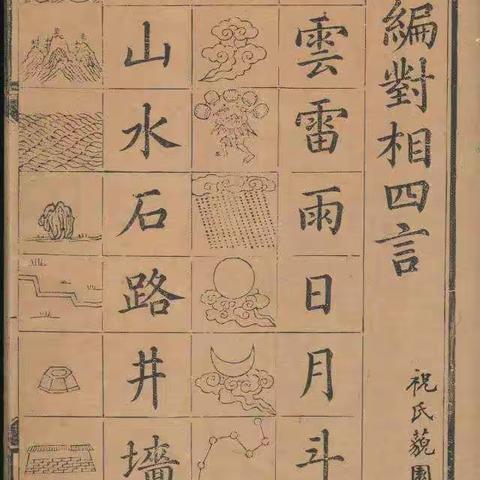 編對相四言
祝氏藐園
雲雷雨日月斗
山水石路井墻